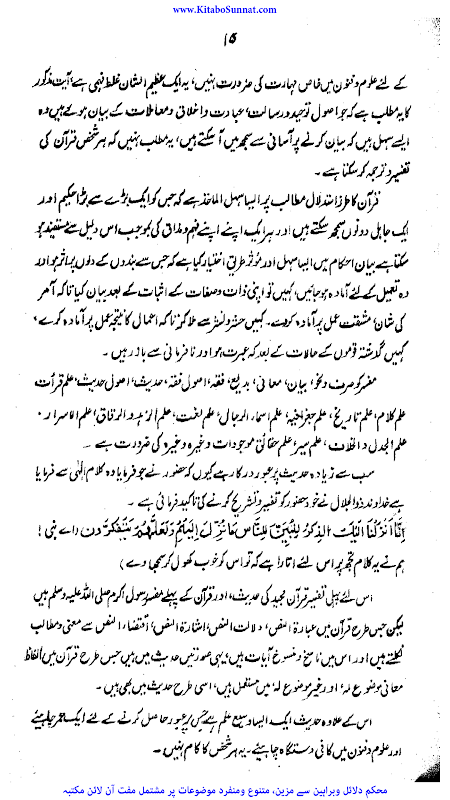 www.KitaboSunnat.com
۱۵
کے لئے علوم و فنون میں خاص مہارت کی ضرورت نہیں، یہ ایک عظیم الشان غلط فہمی ہے، آیت مذکور
کا یہ مطلب ہے کہ جو اصول توحید و رسالت، عبادت و اخلاق و معاملات کے بیان ہوئے ہیں وہ
ایسے سہل ہیں کہ بیان کرنے پر آسانی سے سمجھ میں آ سکتے ہیں، یہ مطلب نہیں کہ ہر شخص قرآن کی
تفسیر و ترجمہ کر سکتا ہے۔
قرآن کا طرز استدلال مطالب پر ایسا سہل الماخذ ہے کہ جس کو ایک بڑے سے بڑا حکیم اور
ایک جاہل دونوں سمجھ سکتے ہیں اور ہر ایک اپنے اپنے فہم و مذاق کی بموجب اس دلیل سے مستفید ہو
سکتا ہے بیان احکام میں ایسا سہل اور موثر طریق اختیار کیا ہے کہ جس سے بندوں کے دلوں پر اثر ہو اور
وہ تعمیل کے لئے آمادہ ہو جائیں، کہیں تو اپنی ذات و صفات کے اثبات کے بعد بیان کیا تاکہ آمر
کی شان، مشقت عمل پر آمادہ کردے۔ کہیں حشر و نشر سے ملا کر تاکہ اعمال کا نتیجہ عمل پر آمادہ کرے،
کہیں گذشتہ قوموں کے حالات کے بعد کہ عبرت ہو اور نا فرمانی سے باز رہیں۔
مفسر کو صرف و نحو، بیان، معانی، بدیع، فقہ، اصول فقہ، حدیث، اصول حدیث، علم قرأت
علم کلام، علم تاریخ، علم جغرافیہ، علم اسماء الرجال، علم لغت، علم الزہد و الرقاق، علم الاسرار،
علم الجدل و الخلاف، علم سیر، علم حقائق موجودات وغیرہ وغیرہ کی ضرورت ہے۔
سب سے زیادہ حدیث پر عبور درکار ہے کیوں کہ حضور نے جو فرمایا وہ کلام الٰہی سے فرمایا
ہے خداوند ذوالجلال نے خود حضور کو تفسیر و تشریح کرنے کی تاکید فرمائی ہے۔
إِنَّا أَنْزَلْنَا إِلَيْكَ الذِّكْرَ لِتُبَيِّنَ لِلنَّاسِ مَا نُزِّلَ إِلَيْهِمْ وَلَعَلَّهُمْ يَتَفَكَّرُونَ (اے نبی!
ہم نے یہ کلام تجھ پر اس لئے اتارا ہے کہ تو اس کو خوب کھول کر سمجھا دے)
اس لئے پہلی تفسیر قرآن مجید کی حدیث، اور قرآن کے پہلے مفسر رسول اکرم صلی اللہ علیہ وسلم ہیں
لیکن جس طرح قرآن میں عبارۃ النص، دلالت النص، اشارۃ النص، اقتضاء النص سے معنی و مطالب
نکلتے ہیں اور اس میں ناسخ و منسوخ آیات ہیں، یہی صورتیں حدیث میں ہیں جس طرح قرآن میں الفاظ
معانی موضوع لہ، اور غیر موضوع لہ، میں مستعمل ہیں، اسی طرح حدیث میں بھی ہیں۔
اس کے علاوہ حدیث ایک ایسا وسیع علم ہے جس پر عبور حاصل کرنے کے لئے ایک عمر چاہیئے
اور علوم و فنون میں کافی دستگاہ چاہیئے۔ یہ ہر شخص کا کام نہیں۔
محکم دلائل وبراہین سے مزین، متنوع ومنفرد موضوعات پر مشتمل مفت آن لائن مکتبہ